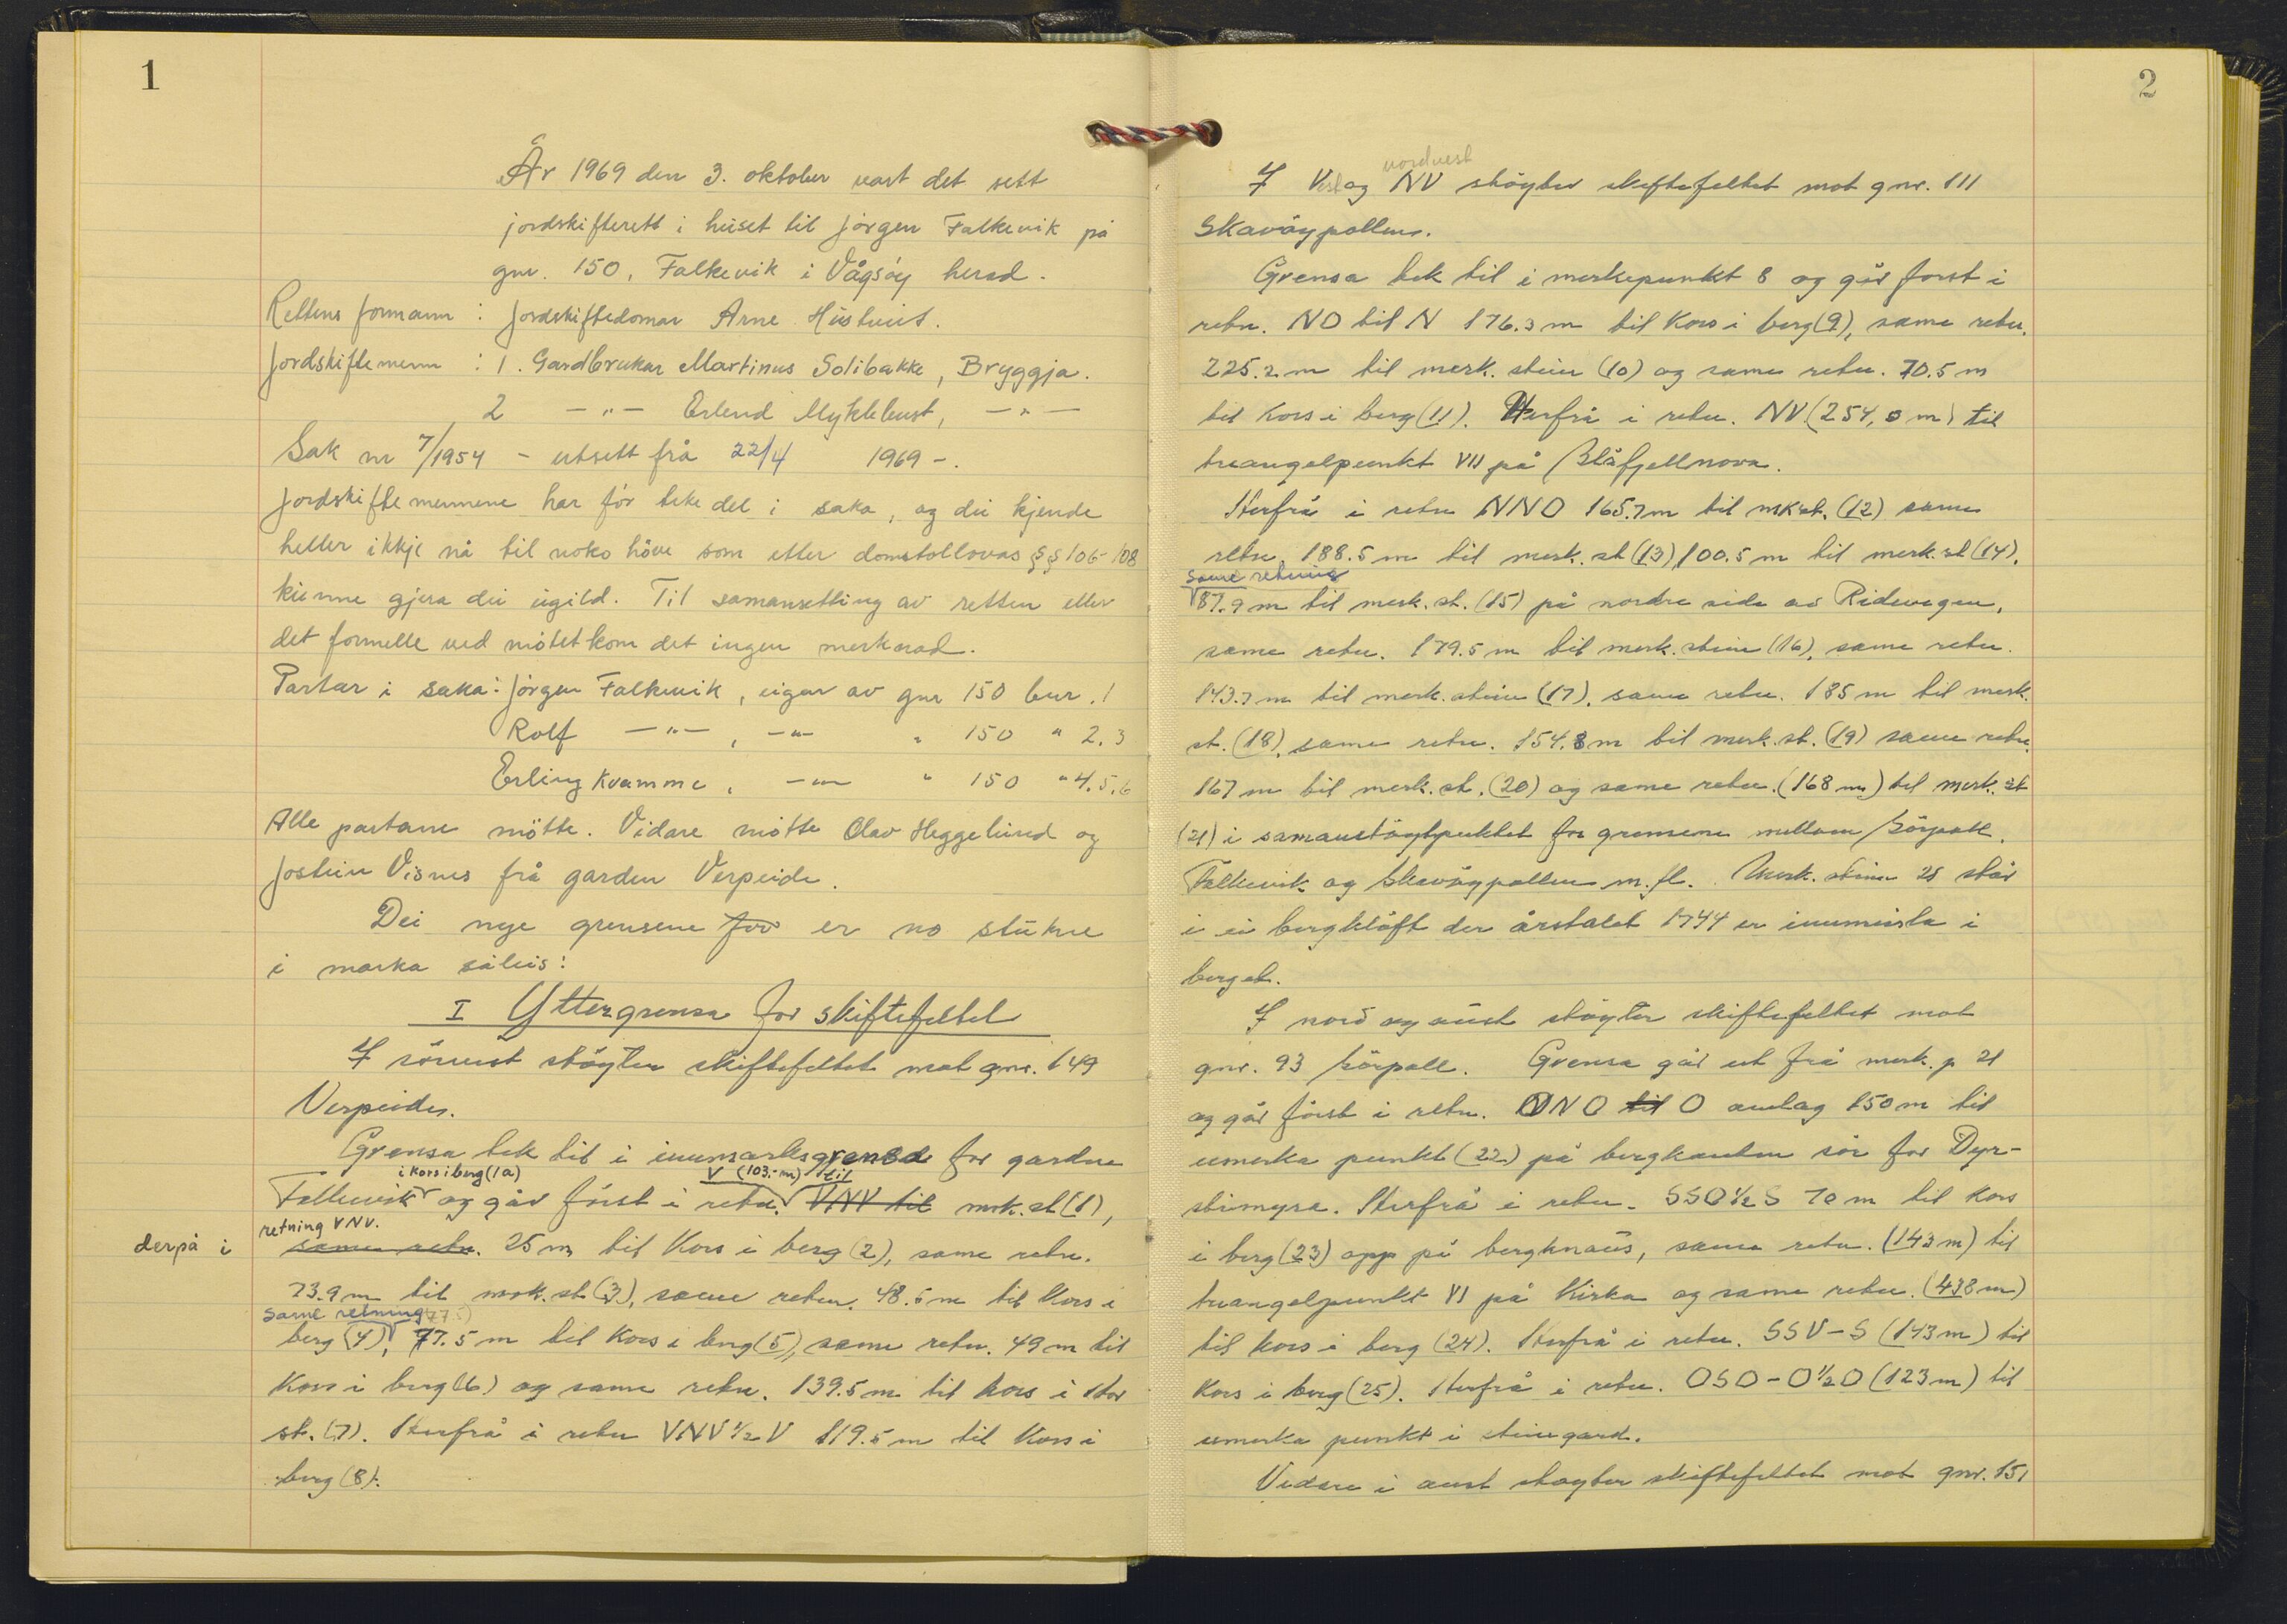 1
År 1969 den 3. oktober vart det sett
jordskifterett i huset til Jörgen Falkevik på
gnr. 150, Falkevik i Vågsöy herad.
Rettens formann : Jordskiftedomar Arne Hustveit.
Jordskiftemenn : 1. Gardbrukar Martinus Solibakke, Bryggja.
2 —"— Erlend Myklebust, —"—
Sak nr 7/1954 - utsett frå 22/4 1969 -.
Jordskiftemennene har för teke del i saka, og dei kjende
heller ikkje nå til noko höve som etter domstollovas §§ 106-108
kunne gjera dei ugild. Til samansetting av retten eller
det formelle ved mötet kom det ingen merknad.
Partar i saka: Jörgen Falkevik, eigar av gnr 150 bnr. 1
Rolf —"—, —"— " 150 " 2,3
Erling Kvamme, —"— " 150 " 4,5,6
Alle partane mötte. Vidare mötte Olav Heggelund og
Jostein Visnes frå garden Verpeide.
Dei nye grensene for er no stukne
i marka såleis:
I Yttergrensa for skiftefeltet
I sörvest stöyter skiftefeltet mot gnr. 149
Verpeide.
Grensa tek til i innmarksgrensa for gardne
i kors i berg (1a) V (103,- m) til
Falkevik og går först i retn. VNV til mrk. st (1),
retning VNV.
derpå i same retn. 25 m til Kors i berg (2), same retn.
73.9 m til mrk. st (3), same retn. 48.5 m til kors i
same retning (77.5)
berg (4), 77.5 m til Kors i berg (5), same retn. 49 m til
Kors i berg (6) og same retn. 139.5 m til kors i stor
st. (7). Herfrå i retn VNV 1/2 V 119.5 m til Kors i
berg (8).
2
nordvest
I Vest og NV stöyter skiftefeltet mot gnr. 111
Skavöypollen.
Grensa tek til i merkepunkt 8 og går först i
retn. NO til N 176.3 m til Kors i berg (9), same retn.
225.2 m til merk. stein (10) og same retn. 70.5 m
til Kors i berg (11). Herfrå i retn. NV (254,0 m) til
triangelpunkt VII på Blåfjellnova.
Herfrå i retn NNO 165.7 m til mrk st. (12) same
retn. 188.5 m til merk. st (13) 100.5 m til merk. st (14),
same retning
87.9 m til merk. st. (15) på nordre side av Ridevegen,
same retn. 179.5 m til merk. stein (16), same retn.
143.7 m til merk. stein (17), same retn. 185 m til merk.
st. (18), same retn. 154.8 m til merk. st. (19) same retn.
167 m til merk. st. (20) og same retn. (168 m) til merk. st
(21) i samanstöytpunktet for grensene mellom Sörpoll,
Falkevik og Skavöypollen m.fl. Merk. stein 21 står
i ei bergklöft der årstalet 1744 er innmeisla i
berget.
I nord og aust stöyter skiftefeltet mot
gnr. 93 Sörpoll. Grensa går ut frå merk. p 21
og går först i retn. ONO til O omlag 150 m til
umerka punkt (22) på bergkanten sör for Dyr-
stimyra. Herfrå i retn. SSO 1/2 S 70 m til kors
i berg (23) opp på bergknaus, same retn. (143 m) til
triangelpunkt VI på Kirka og same retn. (438 m)
til kors i berg (24). Herfrå i retn. SSV-S (143 m) til
Kors i berg (25). Herfrå i retn. OSO-O 1/2 O (123 m) til
umerka punkt i steingard.
Vidare i aust stöyter skiftefeltet mot gnr. 151